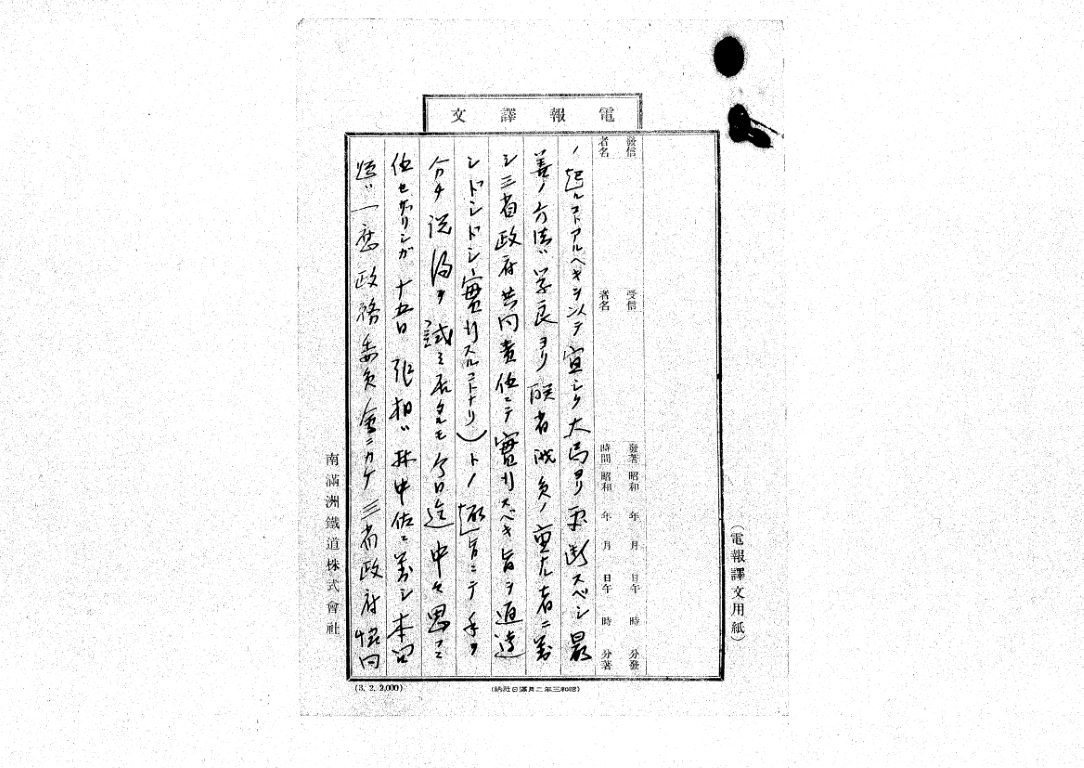 電報譯文
(電報譯文用紙)
發信者名 受信者名 發著時間 昭和 年 月 日午 時 分發
昭和 年 月 日午 時 分著
ノ起ルコトアルヘキヲ以テ宜シク大局ヨリ更断スベシ最
善ノ方法ハ学良ヨリ聯省議員ノ重ナル者ニ対
シ三省政府共同責任ニテ實行スベキ旨ヲ通達
シドンドン實行スルコトナリ)トノ趣旨ニテ手ヲ
分チ説得ヲ試ミ居タルモ今日迄中々思フニ
任セザリシガ十五日張相ハ林中佐ニ対シ本問
題ハ一應政務委員會ニカケ三省政府協同
南滿洲鐵道株式會社
(3. 2. 2,000)